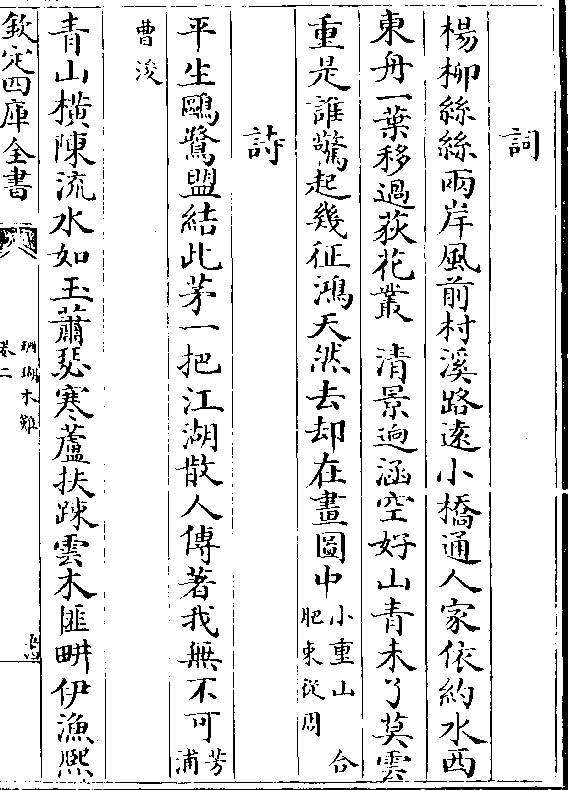 詞
楊柳絲絲兩岸風前村溪路遠小橋通人家依約水西
東舟一葉移過荻花叢　清景逈涵空好山青未了莫雲
重是誰驚起幾征鴻天然去却在畫圖中
小重山　合
肥束從周
詩
平生鷗鷺盟結此茅一把江湖散人傳著我無不可
芳
浦
曹浚
青山橫陳流水如玉蕭瑟寒蘆扶踈雲木匪畊伊漁熙
欽定四庫全書
珊瑚木難
卷二